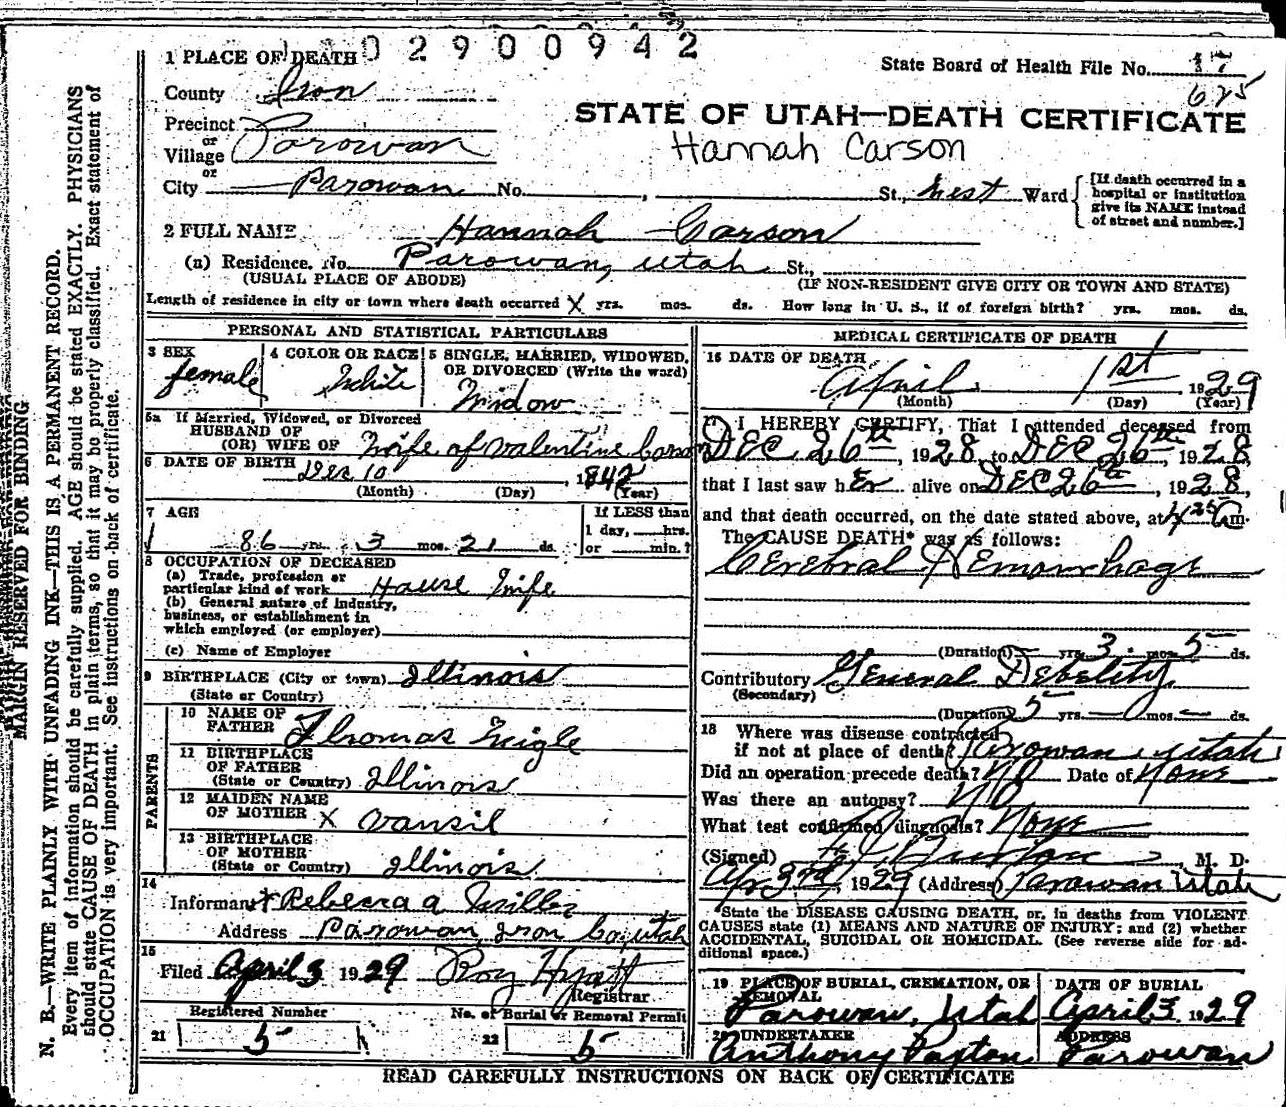 02900942
1 PLACE OF DEATH
State Board of Health File No. 17
625
County Iron
STATE OF UTAH—DEATH CERTIFICATE
Hannah Carson
Precinct
or
Village Parowan
or
City Parowan No. , St., west Ward
[If death occurred in a
hospital or institution
give its NAME instead
of street and number.]
2 FULL NAME Hannah Carson
(a) Residence. No. Parowan, Utah St.,
(USUAL PLACE OF ABODE) (IF NON-RESIDENT GIVE CITY OR TOWN AND STATE)
Length of residence in city or town where death occurred X yrs. mos. ds. How long in U. S., if of foreign birth? yrs. mos. ds.
PERSONAL AND STATISTICAL PARTICULARS
3 SEX
female
4 COLOR OR RACE
White
5 SINGLE, MARRIED, WIDOWED,
OR DIVORCED (Write the word)
Widow
5a If Married, Widowed, or Divorced
HUSBAND OF
(OR) WIFE OF Wife of Valentine Carson
6 DATE OF BIRTH Dec 10, 1842
(Month) (Day) (Year)
7 AGE
86 yrs. 3 mos. 21 ds.
If LESS than
1 day, hrs.
or min.?
8 OCCUPATION OF DECEASED
(a) Trade, profession or
particular kind of work House Wife
(b) General nature of Industry,
business, or establishment in
which employed (or employer)
(c) Name of Employer
9 BIRTHPLACE (City or town) Illinois
(State or Country)
PARENTS
10 NAME OF
FATHER Thomas
11 BIRTHPLACE
OF FATHER
(State or Country) Illinois
12 MAIDEN NAME
OF MOTHER X Vansil
13 BIRTHPLACE
OF MOTHER
(State or Country) Illinois
14
Informant x Rebecca a Miller
Address Parowan, Iron Co, Utah
15
Filed April 3 1929 Roy Hyatt
Registrar
Registered Number No. of Burial or Removal Permit
21 5 22 5
MEDICAL CERTIFICATE OF DEATH
16 DATE OF DEATH
April 1st 1929
(Month) (Day) (Year)
17 I HEREBY CERTIFY, That I attended deceased from
DEC 26th, 1928, to DEC 26th, 1928,
that I last saw hEr alive on DEC 26th, 1928,
and that death occurred, on the date stated above, at 4 25 a m.
The CAUSE DEATH* was as follows:
Cerebral HEmorrhage
(Duration) — yrs. 3 mos. 5 ds.
Contributory General Debelity
(Secondary)
(Duration) 5 yrs. — mos. — ds.
18 Where was disease contracted
if not at place of death? Parowan Utah
Did an operation precede death? NO Date of None
Was there an autopsy? NO
What test confirmed diagnosis? None
(Signed) Burton, M. D.
Apr 3rd, 1929 (Address) Parowan Utah
*State the DISEASE CAUSING DEATH, or, in deaths from VIOLENT
CAUSES state (1) MEANS AND NATURE OF INJURY; and (2) whether
ACCIDENTAL, SUICIDAL OR HOMICIDAL. (See reverse side for ad-
ditional space.)
19 PLACE OF BURIAL, CREMATION, OR
REMOVAL
Parowan, Utah
DATE OF BURIAL
April 3 1929
20 UNDERTAKER
Anthony Paxton
ADDRESS
Parowan
READ CAREFULLY INSTRUCTIONS ON BACK OF CERTIFICATE
MARGIN RESERVED FOR BINDING
N. B.—WRITE PLAINLY WITH UNFADING INK—THIS IS A PERMANENT RECORD.
Every item of information should be carefully supplied. AGE should be stated EXACTLY. PHYSICIANS
should state CAUSE OF DEATH in plain terms, so that it may be properly classified. Exact statement of
OCCUPATION is very important. See instructions on back of certificate.